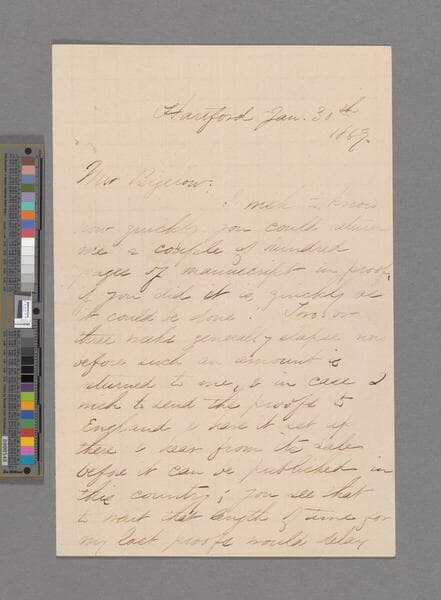 Hartford Jan. 30th
1869.
Mr Bigelow:
I wish to know
how quickly you could return
me a couple of hundred
pages of manuscript in proof,
if you did it as quickly as
it could be done. Two or
three weeks generally elapse now
before such an amount is
returned to me, & in case I
wish to send the proofs to
England to have it set up
there & hear from its sale
before it can be published in
this country; you see that
to wait that length of time for
my last proofs would delay